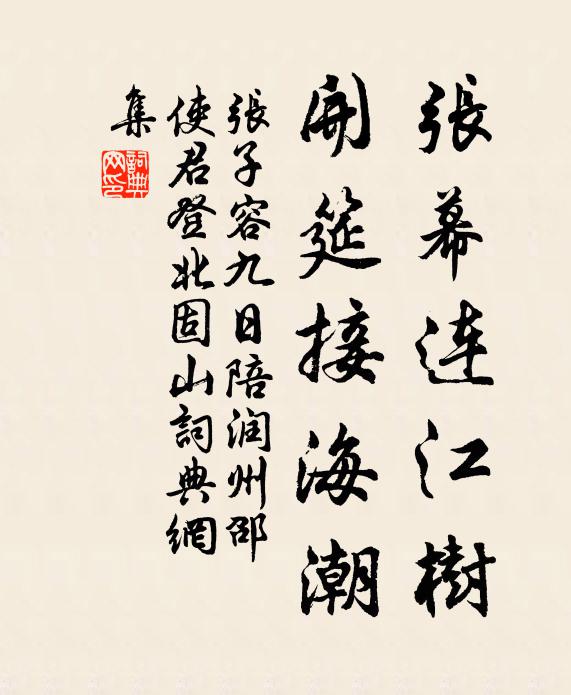 張幕連江樹
開筵接海潮
張子容九日陪润州邵
使君登北固山詞典網
集
詞典网印